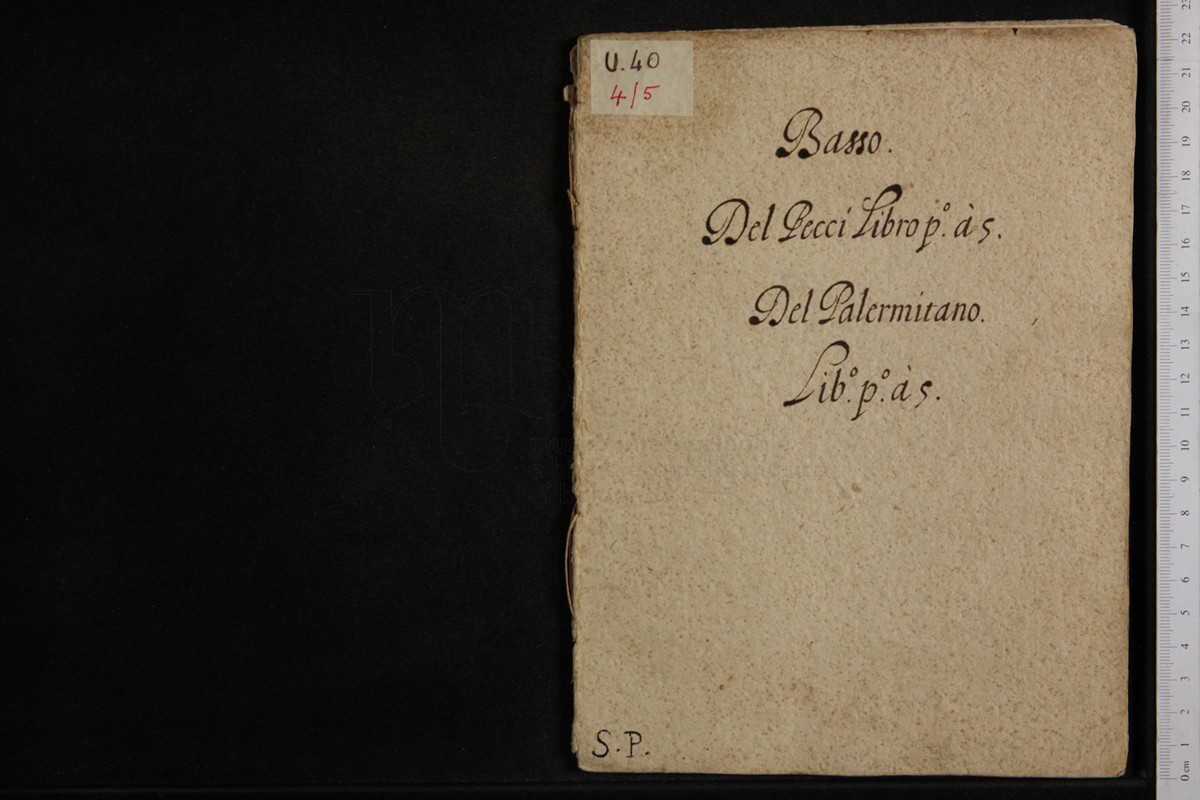 U.40
4/5
Basso.
Del Pecci Libro pº. à 5.
Del Palermitano.
Libº. pº. à 5.
S.P.
23
22
21
20
19
18
17
16
15
14
13
12
11
10
9
8
7
6
5
4
3
2
1
0 cm